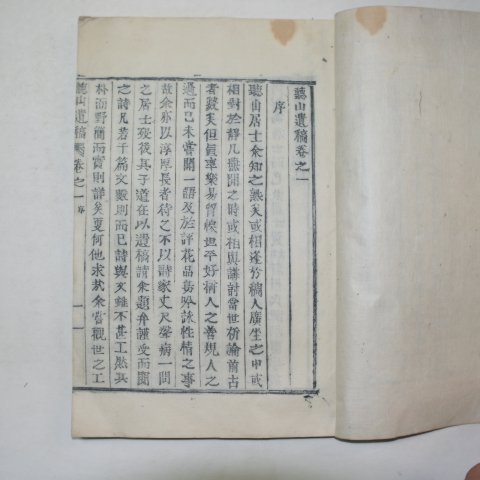 聽山遺稿卷之一
序
聽山居士余知之熟矣或相逢於稠人廣坐之中或
相對於靜几燕閒之時或相與講討當世析論前古
者數矣但眞率樂易質穆坦平好稱人之善規人之
過而已未嘗聞一語及於評花品鳥吟詠性情之事
故余亦以淳厚長者待之不以詩家丈尺聲病一問
之居士歿後其子道在以遺稿請余題弁謹受而閱
之詩凡若干篇文數則而已詩與文雖不甚工然其
朴而野簡而實則詳矣夏何他求哉余嘗觀世之工
聽山遺稿 卷之一 序 一